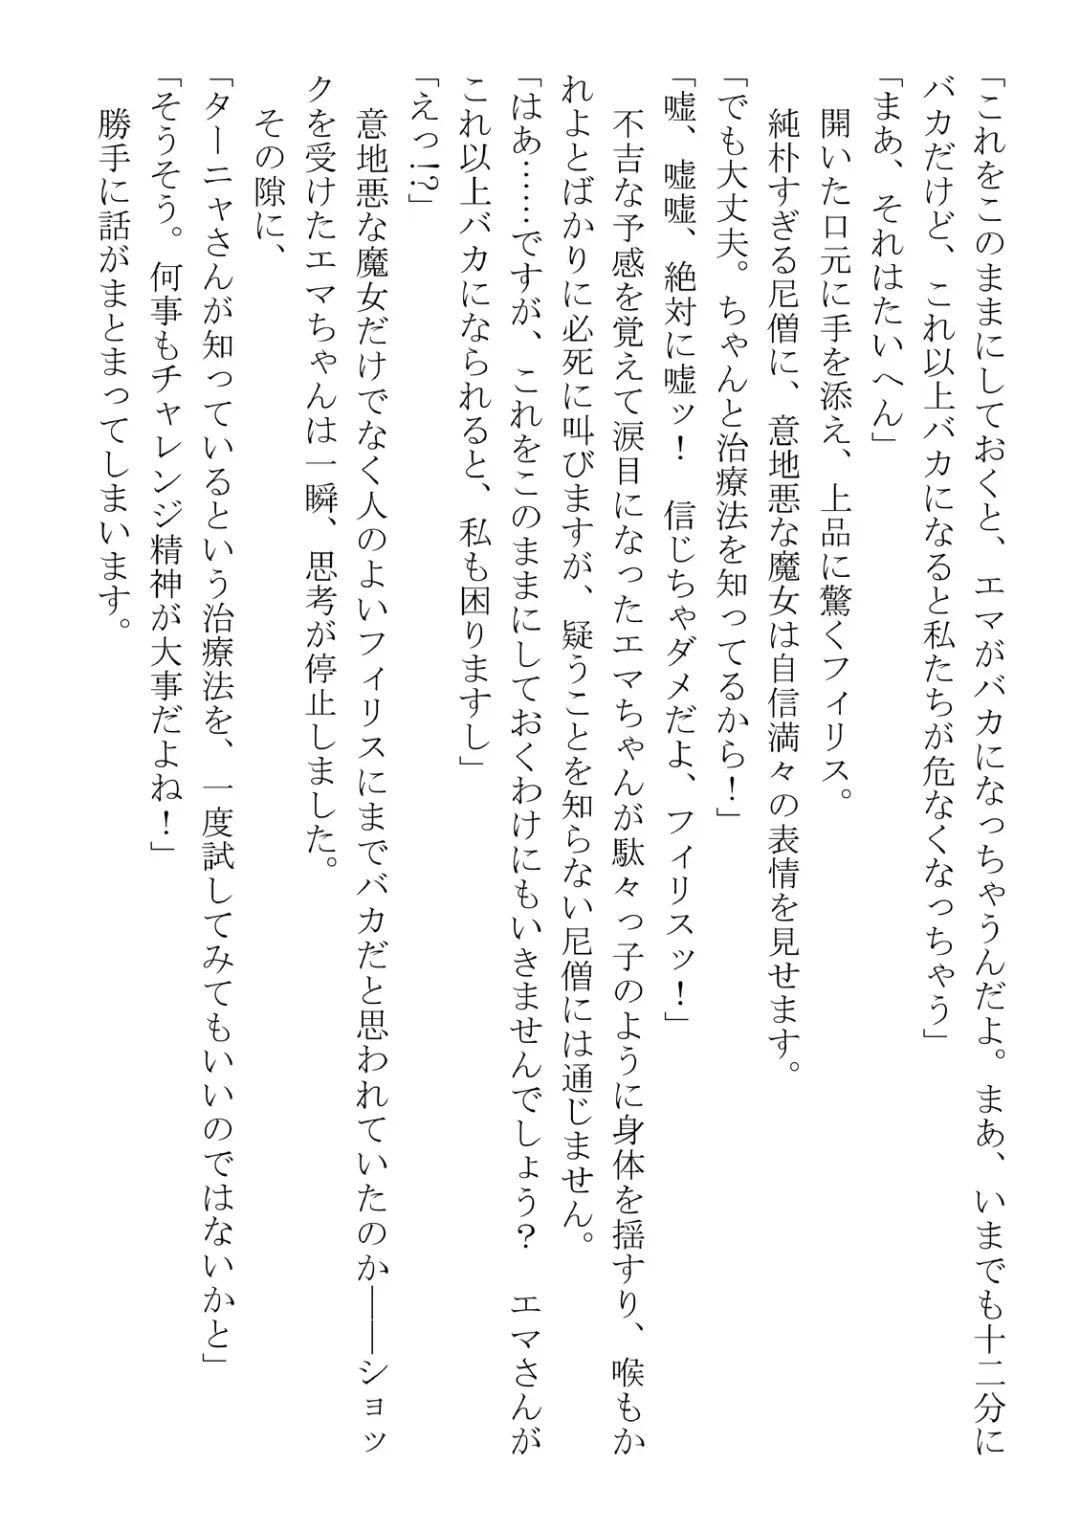 「これをこのままにしておくと、エマがバカになっちゃうんだよ。まあ、いまでも十二分に
バカだけど、これ以上バカになると私たちが危なくなっちゃう」
「まあ、それはたいへん」
　開いた口元に手を添え、上品に驚くフィリス。
　純朴すぎる尼僧に、意地悪な魔女は自信満々の表情を見せます。
「でも大丈夫。ちゃんと治療法を知ってるから！」
「嘘、嘘嘘、絶対に嘘ッ！　信じちゃダメだよ、フィリスッ！」
　不吉な予感を覚えて涙目になったエマちゃんが駄々っ子のように身体を揺すり、喉もか
れよとばかりに必死に叫びますが、疑うことを知らない尼僧には通じません。
「はあ……ですが、これをこのままにしておくわけにもいきませんでしょう？　エマさんが
これ以上バカになられると、私も困りますし」
「えっ!?」
　意地悪な魔女だけでなく人のよいフィリスにまでバカだと思われていたのか――ショッ
クを受けたエマちゃんは一瞬、思考が停止しました。
　その隙に、
「ターニャさんが知っているという治療法を、一度試してみてもいいのではないかと」
「そうそう。何事もチャレンジ精神が大事だよね！」
　勝手に話がまとまってしまいます。